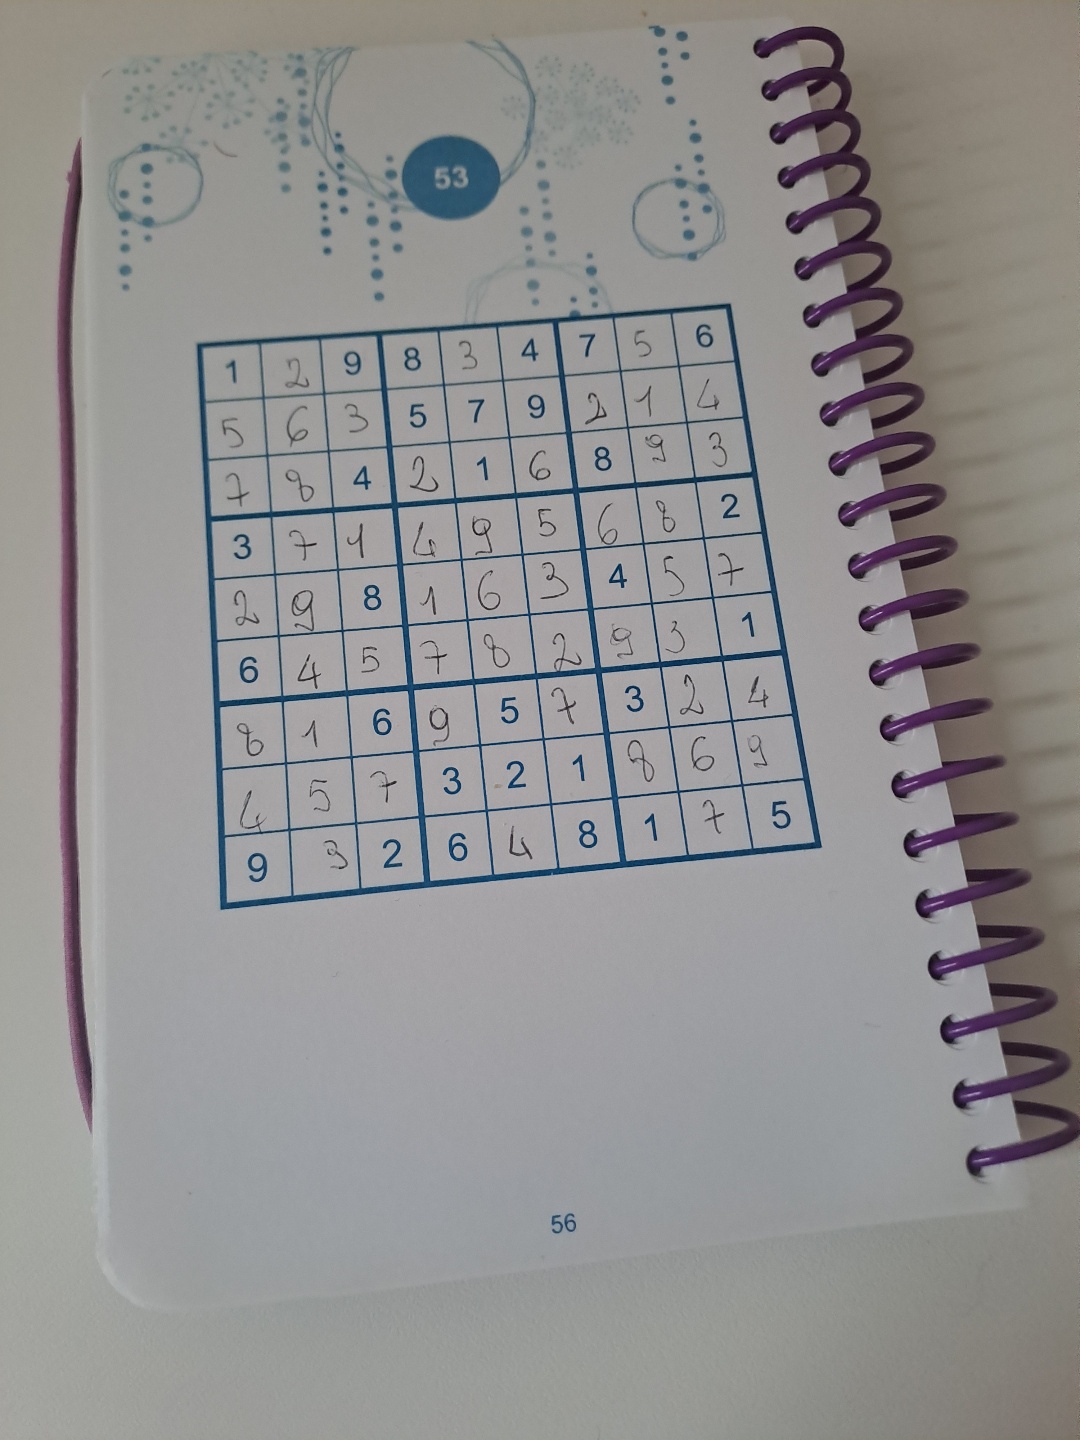 53
1 2 9 8 3 4 7 5 6
5 6 3 5 7 9 2 1 4
7 8 4 2 1 6 8 9 3
3 7 1 4 9 5 6 8 2
2 9 8 1 6 3 4 5 7
6 4 5 7 8 2 9 3 1
8 1 6 9 5 7 3 2 4
4 5 7 3 2 1 8 6 9
9 3 2 6 4 8 1 7 5
56